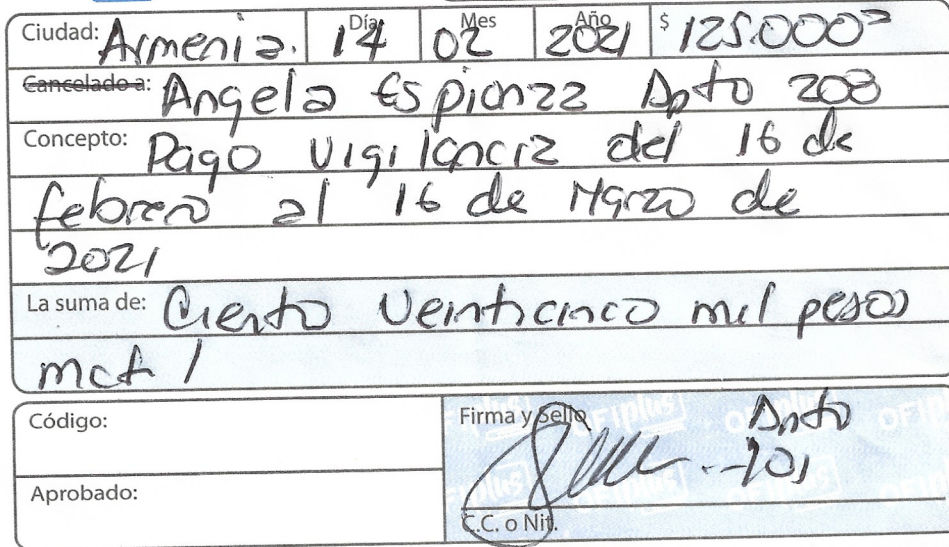 Ciudad: Armenia. Día 14 Mes 02 Año 2021 $ 125.000=
Cancelado a: Angela Espianza Apto 208
Concepto: Pago vigilancia del 16 de
febrero al 16 de Marzo de
2021
La suma de: Ciento Veinticinco mil pesos
mct /
Código:
Firma y Sello Apto
101
Aprobado:
C.C. o Nit.